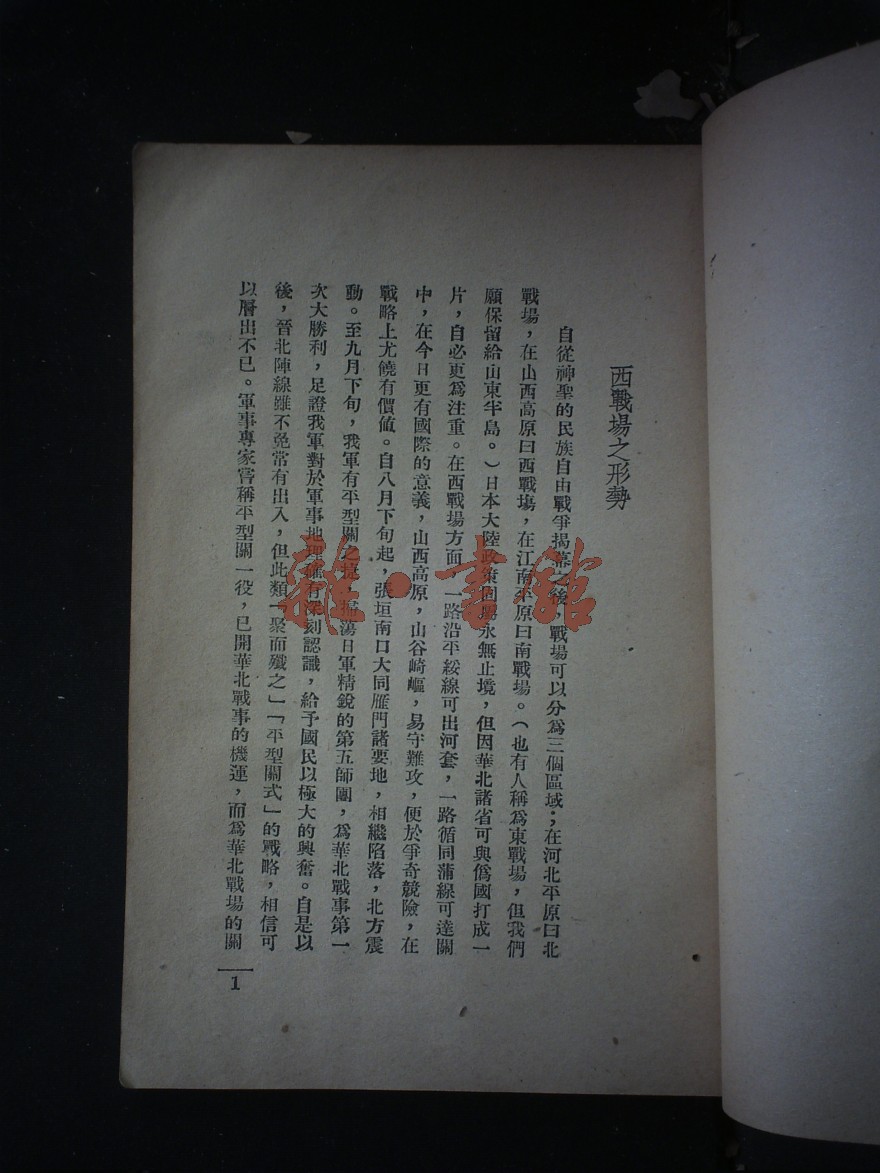 西戰場之形勢
自從神聖的民族自由戰爭揭幕之後，戰場可以分爲三個區域；在河北平原曰北
戰場，在山西高原曰西戰場，在江南平原曰南戰場。（也有人稱爲東戰場，但我們
願保留給山東半島。）日本大陸政策固屬永無止境，但因華北諸省可與僞國打成一
片，自必更爲注重。在西戰場方面，一路沿平綏線可出河套，一路循同蒲線可達關
中，在今日更有國際的意義，山西高原，山谷崎嶇，易守難攻，便於爭奇競險，在
戰略上尤饒有價値。自八月下旬起，張垣南口大同雁門諸要地，相繼陷落，北方震
動。至九月下旬，我軍有平型關之捷，掃蕩日軍精銳的第五師團，爲華北戰事第一
次大勝利，足證我軍對於軍事地理確有深刻認識，給予國民以極大的興奮。自是以
後，晉北陣線雖不免常有出入，但此類「聚而殲之」「平型關式」的戰略，相信可
以層出不已。軍事專家嘗稱平型關一役，已開華北戰事的機運，而爲華北戰場的關
1
雜·書館